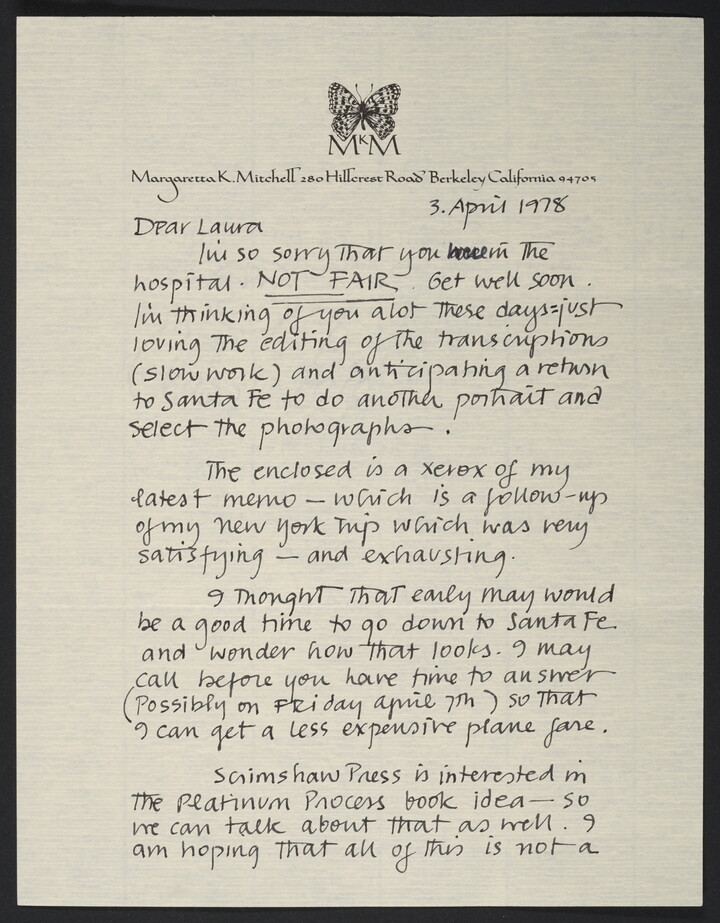 MKM
Margaretta K. Mitchell 280 Hillcrest Road Berkeley California 94705
3. April 1978
Dear Laura
I'm so sorry that you in the
hospital. NOT FAIR. Get well soon.
I'm thinking of you alot these days=just
loving the editing of the transcriptions
(slow work) and anticipating a return
to Santa Fe to do another portrait and
select the photographs.
The enclosed is a xerox of my
latest memo — which is a follow-up
of my new york trip which was very
satisfying — and exhausting.
I thought that early may would
be a good time to go down to Santa Fe
and wonder how that looks. I may
call before you have time to answer
(Possibly on Friday april 7th) so that
I can get a less expensive plane fare.
Scrimshaw Press is interested in
the Platinum Process book idea — so
we can talk about that as well. I
am hoping that all of this is not a